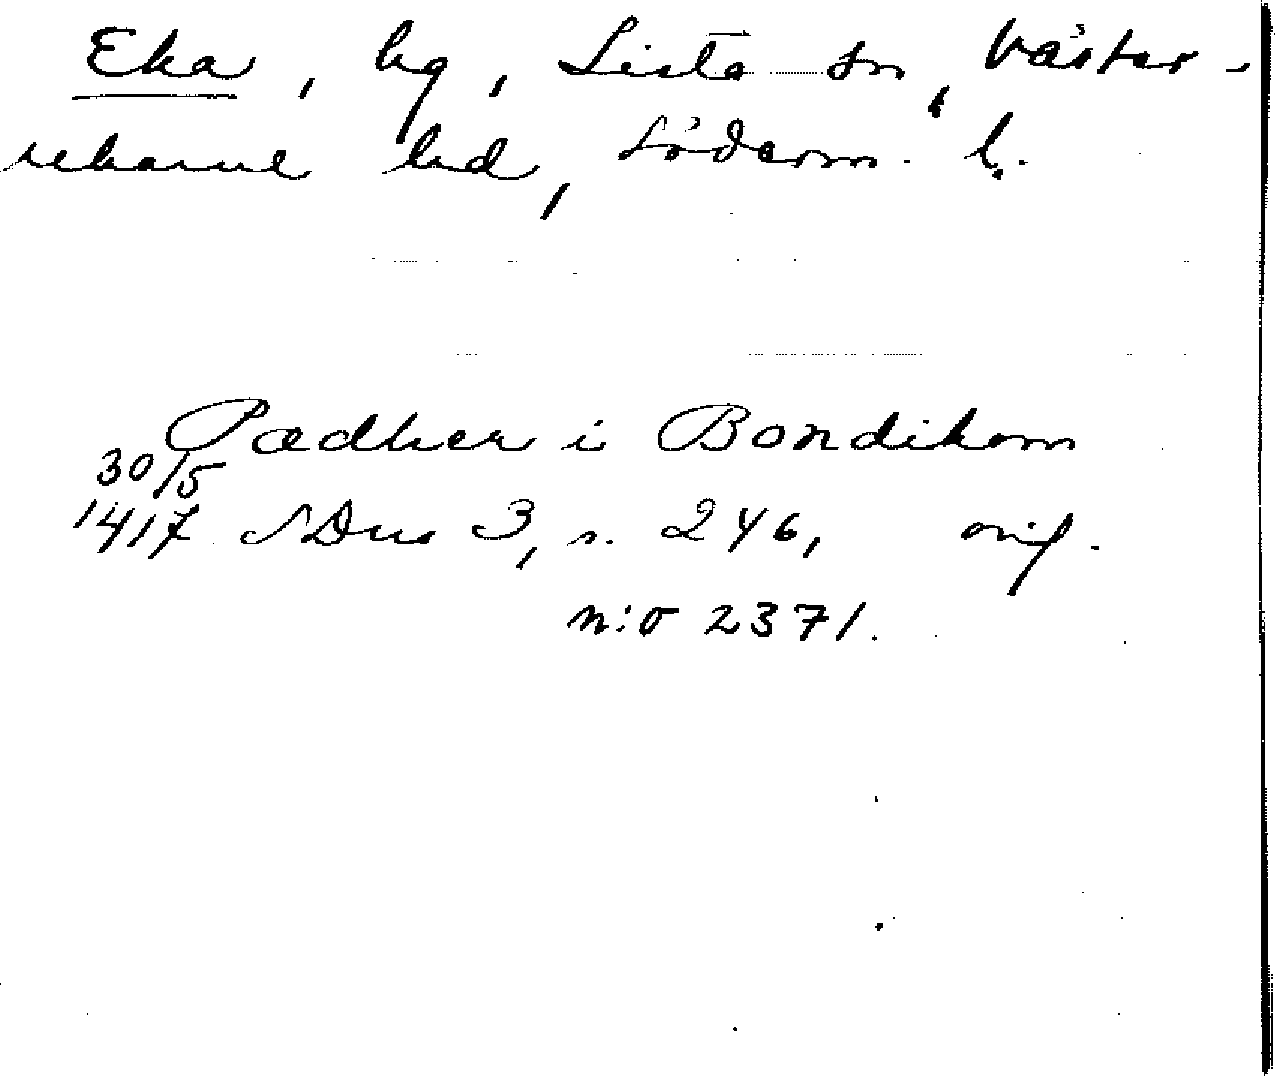 Eka, hg, Lista sn, Väster-
rekarne hd, Söderm. l.
Pædher i Bondikom
30/5
1417 SDns 3, s. 246, orig.
n:o 2371.